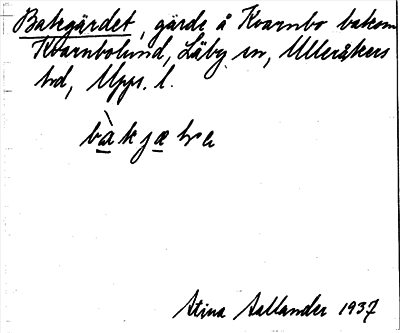 Bakgärdet, gärde å Kvarnbo bakom
Kvarnbolund, Läby sn, Ulleråkers
hd, Upps. l.
Stina Aallander 1937